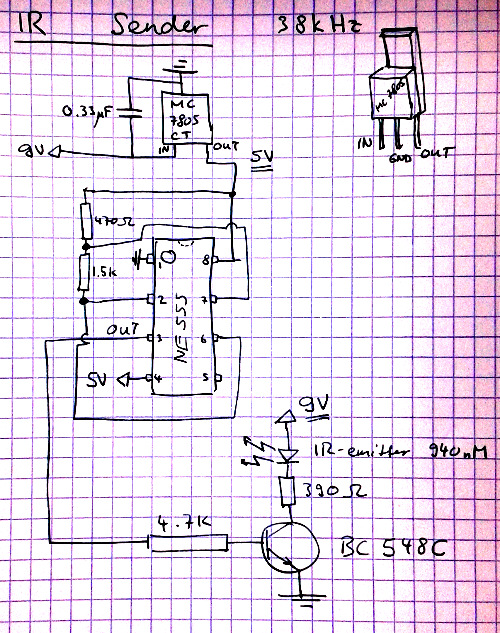 IR Sender 38kHz
MC 7805
IN GND OUT
0.33µF
MC
7805
CT
9V IN OUT
5V
470Ω
1.5K
1 8
2 7
OUT 3 6
5V 4 5
NE555
9V
IR-emitter 940nM
390Ω
4.7K
BC 548C